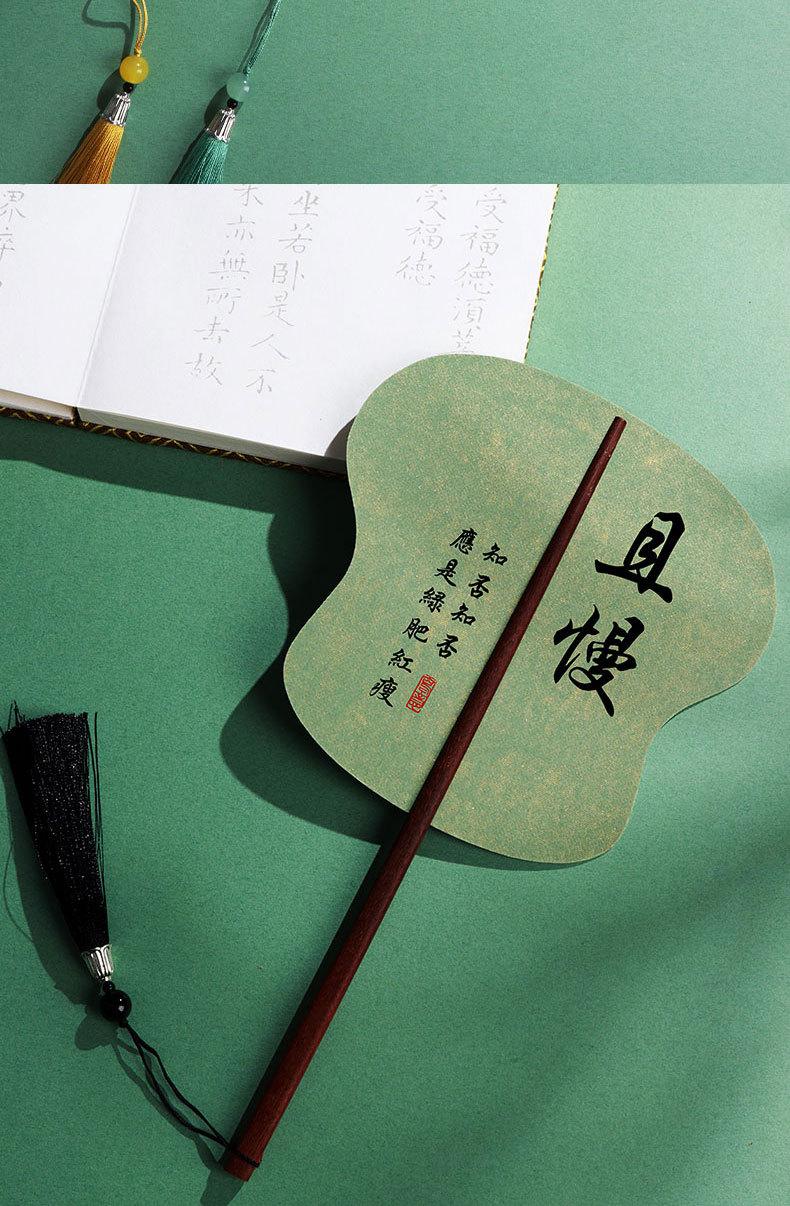 受福德須
受福德
坐若卧是人不
亦無所去故
且慢
知否知否
應是綠肥紅瘦